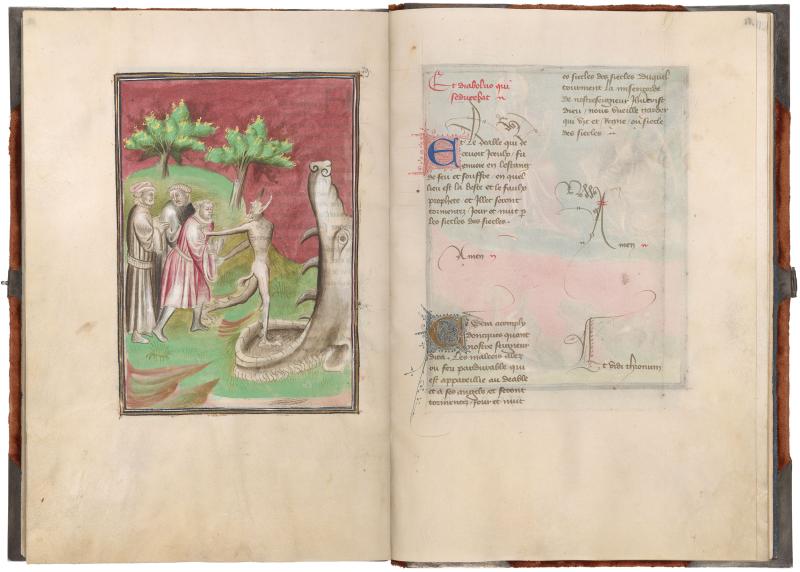 Et diabolus qui
seducebat
Et le deable qui de
cevoit Iceulp / fu
envoie en lestang
de feu et souffre / en quel
lieu est la beste et le faulp
prophete et Illec seront
tormentez Jour et nuit p
les siecles des siecles.
Amen
Ce sera acomply
doncques quant
nostre seigneur
dira. Les maleois alez
ou feu pardurable qui
est appareillie au deable
et a ses angels et seront
tormentez Jour et nuit
es siecles des siecles Duquel
tourment la misericorde
de nostreseigneur Jhucrist
dieu / nous vueille garder
qui vit et Regne / ou siecle
des siecles
Amen
Et vidi thronum